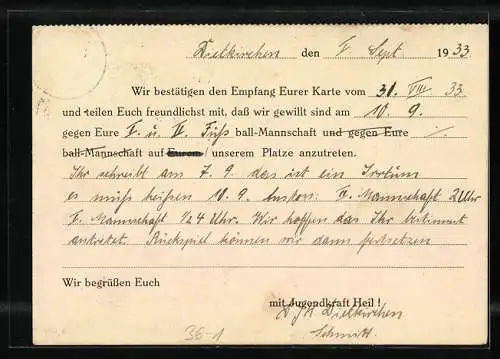 Dietkirchen den 5. Sept. 1933
Wir bestätigen den Empfang Eurer Karte vom 31. VIII 33
und teilen Euch freundlichst mit, daß wir gewillt sind am 10. 9.
gegen Eure I. u. II. Fuß ball-Mannschaft und gegen Eure ./.
ball-Mannschaft auf Eurem / unserem Platze anzutreten.
Ihr schreibt am 7. 9. das ist ein Irrtum
es muß heißen 10. 9. II. Mannschaft 2 Uhr
I. Mannschaft 1/4 Uhr. Wir hoffen das Ihr bestimmt
antretet. Rückspiel können wir dann festsetzen
Wir begrüßen Euch
mit Jugendkraft Heil !
DJK Dietkirchen
Schmitt.
36-1